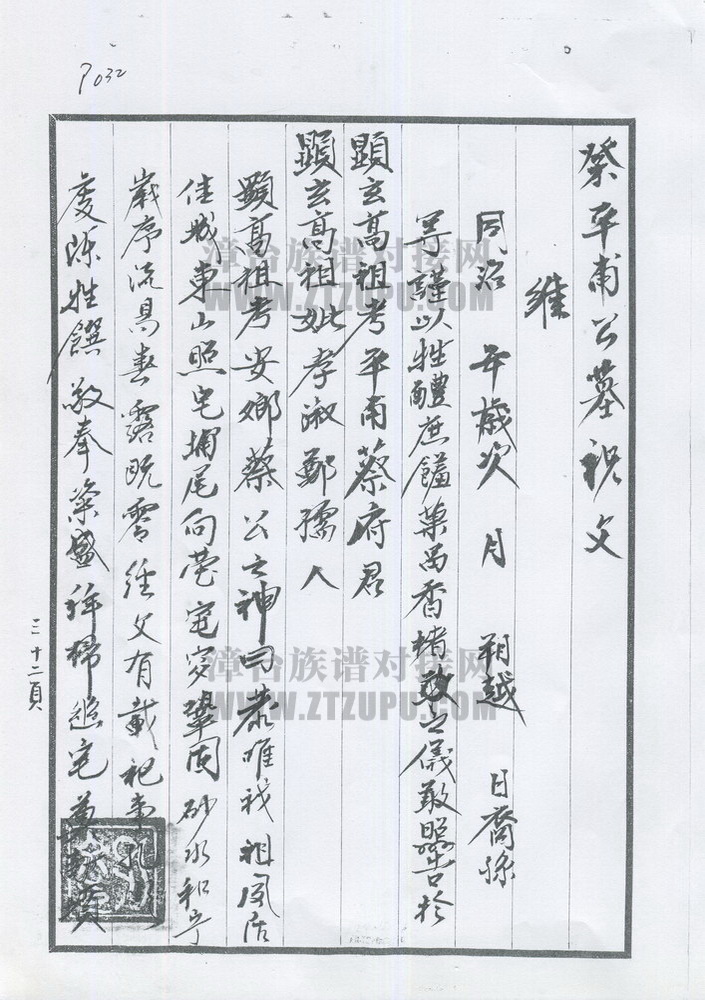 P032
祭平甫公墓祝文
維
同治 年歲次 月 朔越 日裔孫
等謹以牲醴庶饈菓品香楮 之儀敢昭告於
顯玄高祖考平甫蔡府君
顯玄高祖妣孝淑鄭孺人
顯高祖考安鄉蔡公之神曰恭唯我祖夙居
佳城東山照皂埔尾向 宅安鞏固砂水和寧
歲序流易春露既零經文有載祀事孔
虔陳牲饌敬奉粢盛 追
三十二頁
漳台族谱对接网
WWW.ZTZUPU.COM
漳台族谱对接网
WWW.ZTZUPU.COM